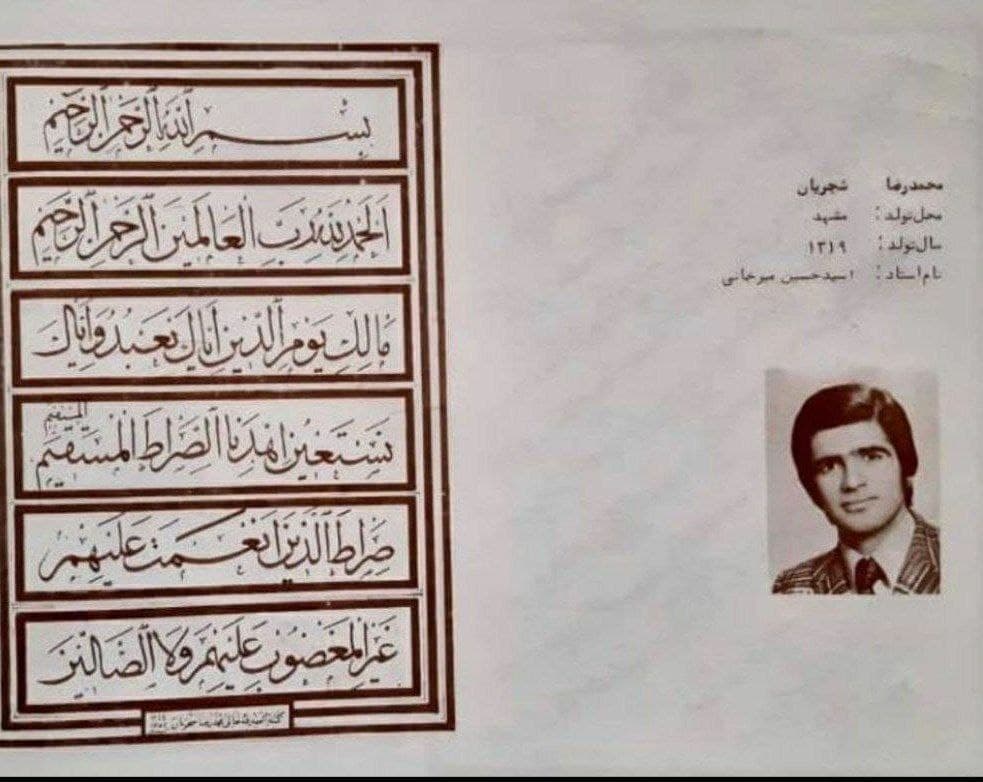 محمدرضا شجریان
محل‌تولد: مشهد
سال‌تولد: ۱۳۱۹
نام‌استاد: سیدحسین میرخانی
بسم الله الرحمن الرحیم
الحمد لله رب العالمین الرحمن الرحیم
مالك یوم الدین ایاك نعبد و ایاك
نستعین اهدنا الصراط المستقیم
صراط الذین انعمت علیهم
غیر المغضوب علیهم ولا الضالین